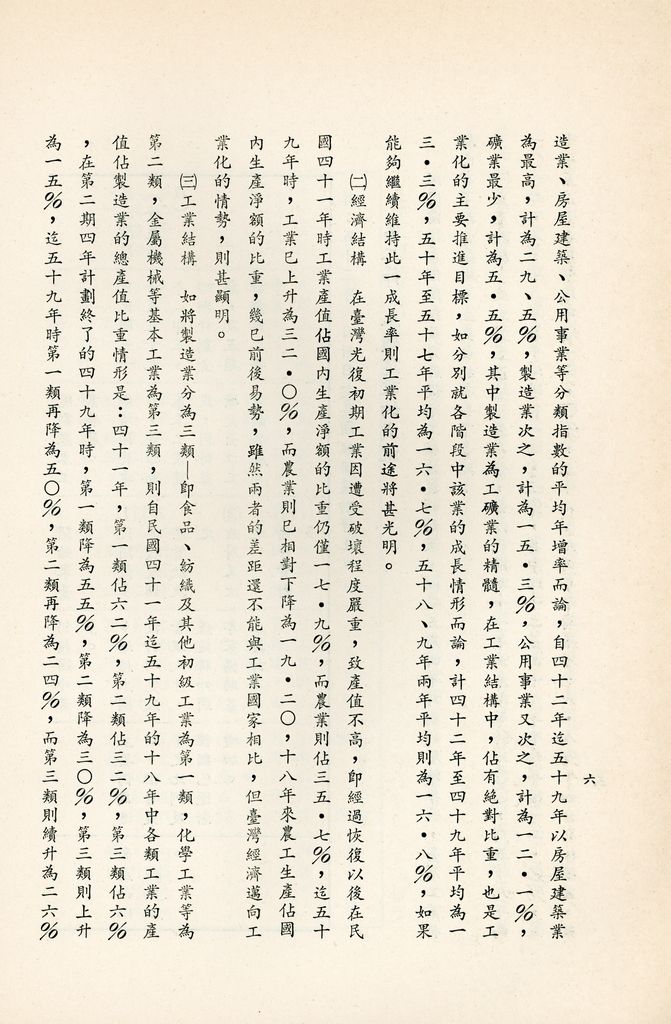 造業、房屋建築、公用事業等分類指數的平均年增率而論，自四十二年迄五十九年以房屋建築業
為最高，計為二九、五％，製造業次之，計為一五・三％，公用事業又次之，計為一二・一％，
礦業最少，計為五・五％，其中製造業為工礦業的精髓，在工業結構中，佔有絕對比重，也是工
業化的主要推進目標，如分別就各階段中該業的成長情形而論，計四十二年至四十九年平均為一
三・三％，五十年至五十七年平均為一六・七％，五十八、九年兩年平均則為一六・八％，如果
能夠繼續維持此一成長率則工業化的前途將甚光明。
㈡經濟結構　在臺灣光復初期工業因遭受破壞程度嚴重，致產值不高，即經過恢復以後在民
國四十一年時工業產值佔國內生產淨額的比重仍僅一七・九％，而農業則佔三五・七％，迄五十
九年時，工業已上升為三二・〇％，而農業則已相對下降為一九・二〇，十八年來農工生產佔國
內生產淨額的比重，幾已前後易勢，雖然兩者的差距還不能與工業國家相比，但臺灣經濟邁向工
業化的情勢，則甚顯明。
㈢工業結構　如將製造業分為三類—即食品、紡織及其他初級工業為第一類，化學工業等為
第二類，金屬機械等基本工業為第三類，則自民國四十一年迄五十九年的十八年中各類工業的產
值佔製造業的總產值比重情形是：四十一年，第一類佔六二％，第二類佔三二％，第三類佔六％
，在第二期四年計劃終了的四十九年時，第一類降為五五％，第二類降為三〇％，第三類則上升
為一五％，迄五十九年時第一類再降為五〇％，第二類再降為二四％，而第三類則續升為二六％
六